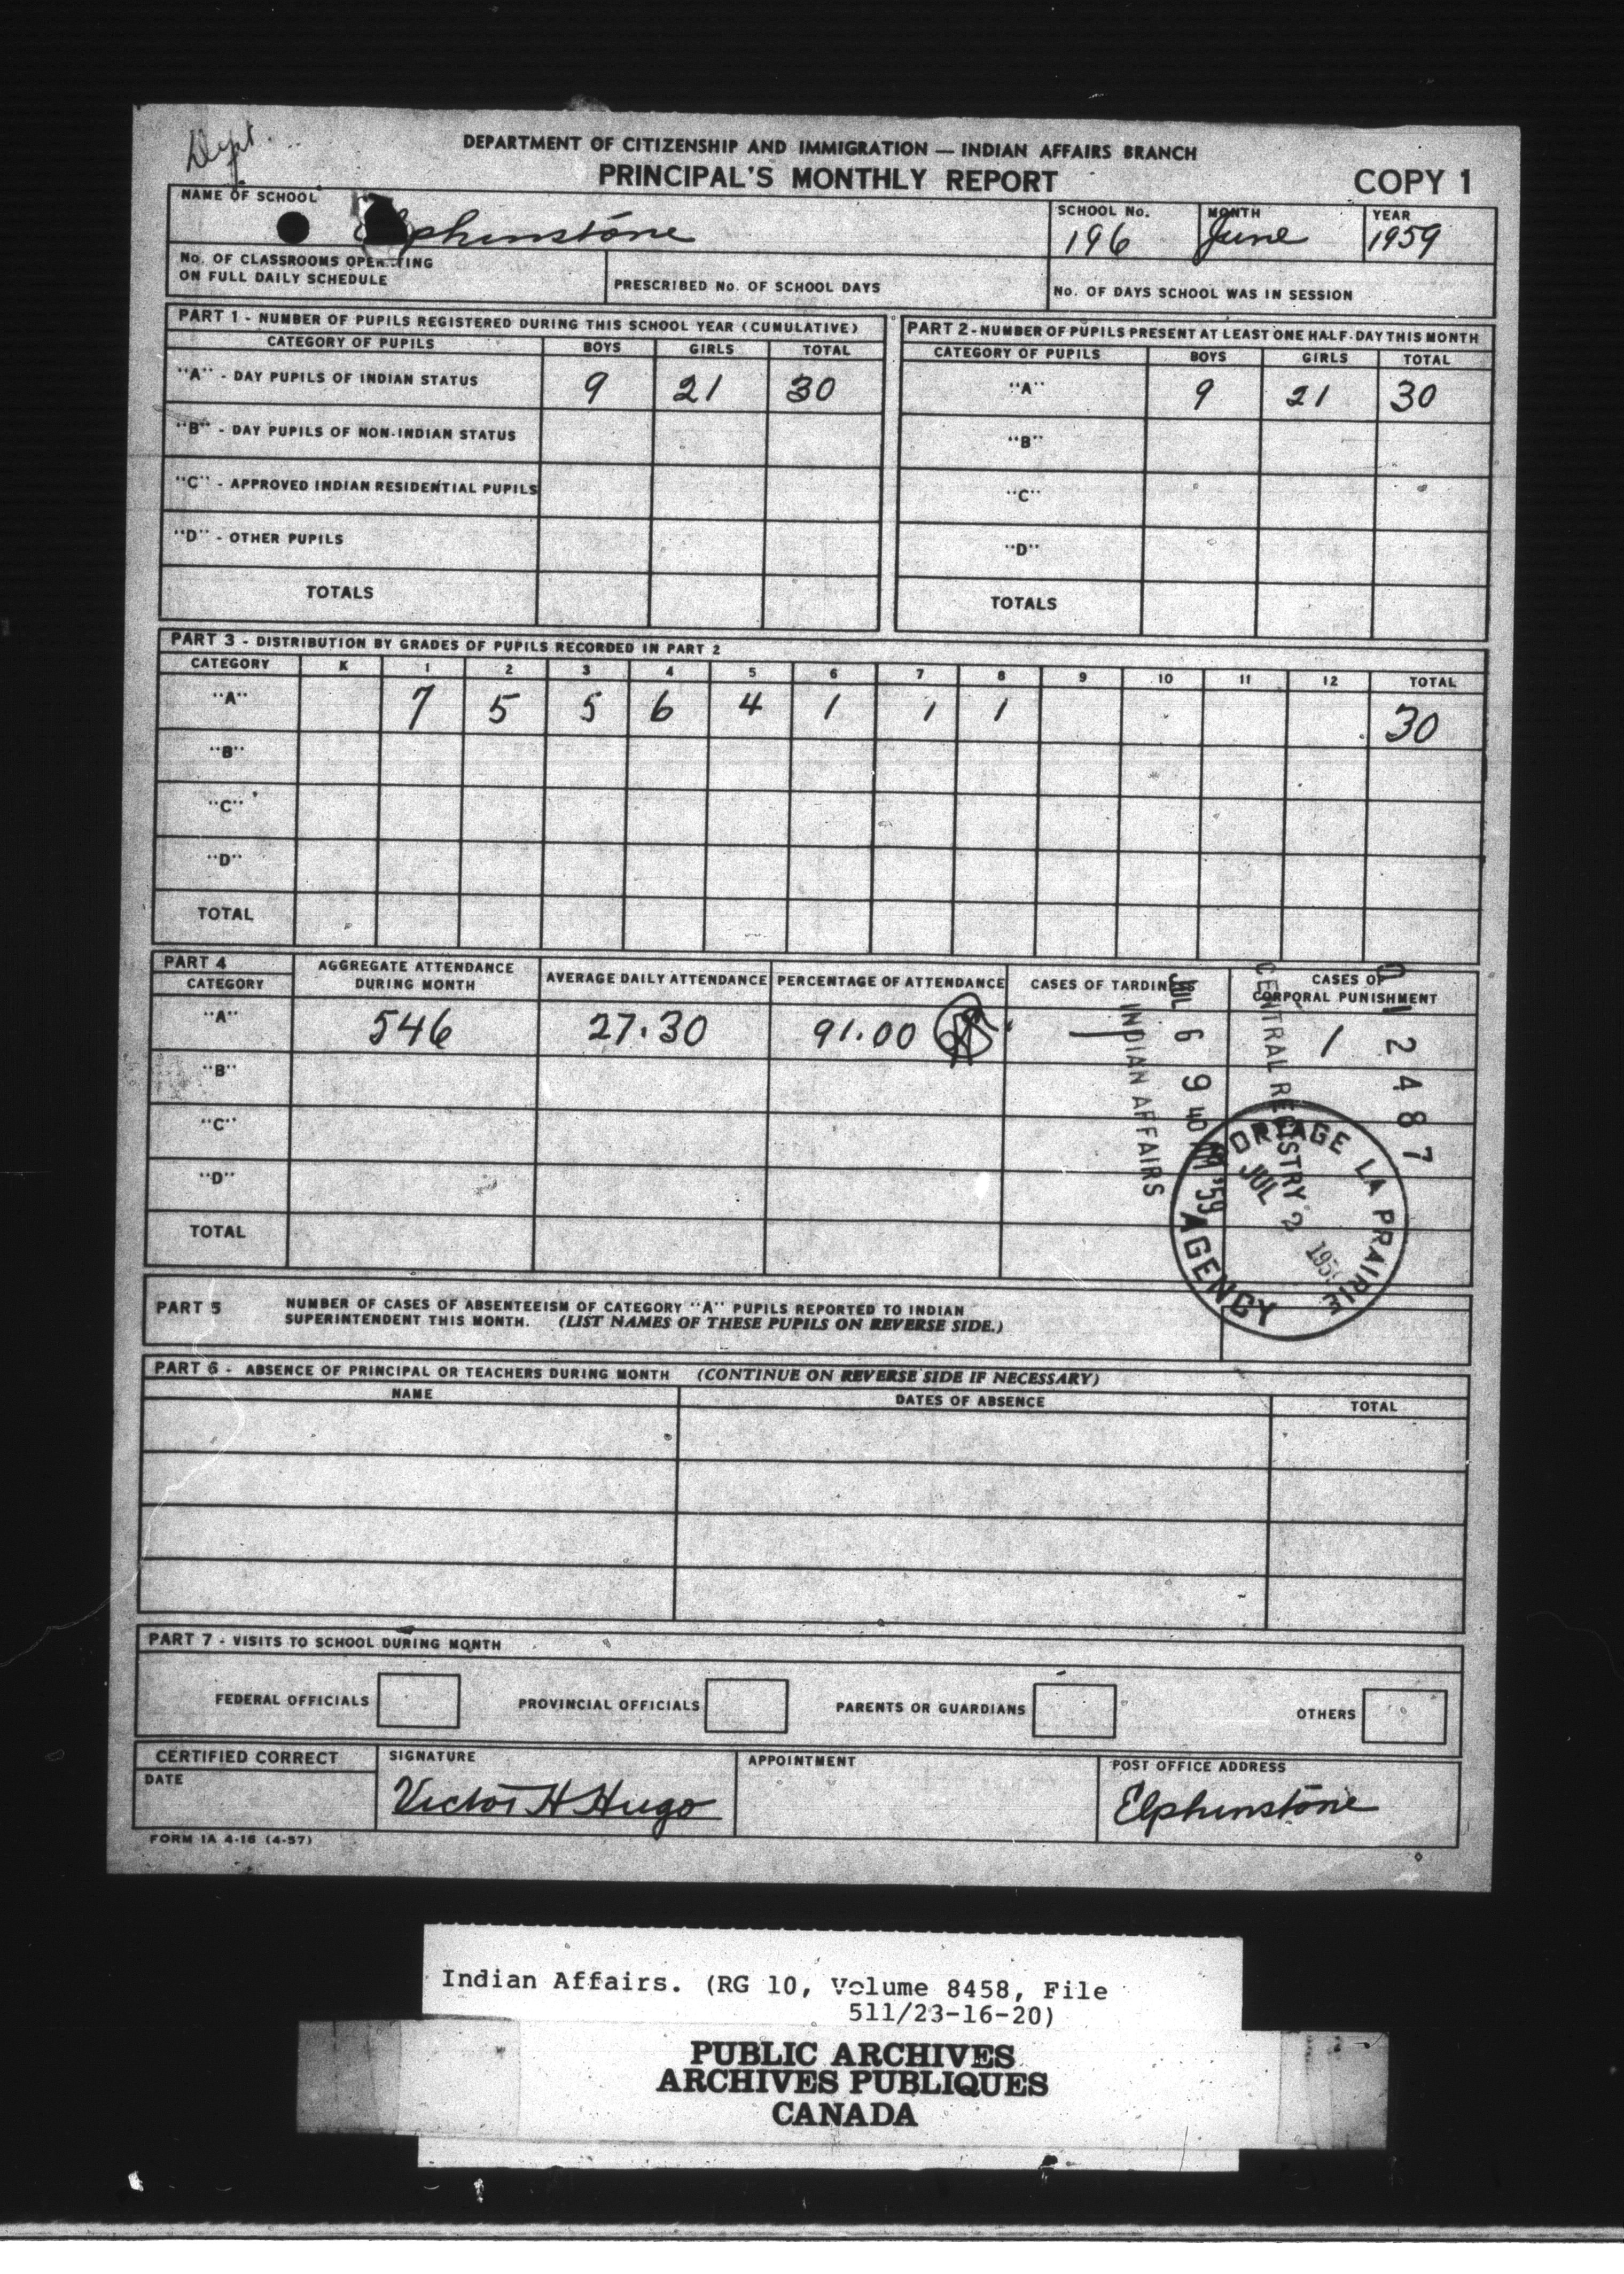 Dept.
DEPARTMENT OF CITIZENSHIP AND IMMIGRATION — INDIAN AFFAIRS BRANCH
PRINCIPAL'S MONTHLY REPORT COPY 1
NAME OF SCHOOL Elphinstone
SCHOOL No. 196
MONTH June
YEAR 1959
No. OF CLASSROOMS OPERATING
ON FULL DAILY SCHEDULE
PRESCRIBED No. OF SCHOOL DAYS
No. OF DAYS SCHOOL WAS IN SESSION
PART 1 - NUMBER OF PUPILS REGISTERED DURING THIS SCHOOL YEAR (CUMULATIVE)
CATEGORY OF PUPILS BOYS GIRLS TOTAL
"A" - DAY PUPILS OF INDIAN STATUS 9 21 30
"B" - DAY PUPILS OF NON-INDIAN STATUS
"C" - APPROVED INDIAN RESIDENTIAL PUPILS
"D" - OTHER PUPILS
TOTALS
PART 2 - NUMBER OF PUPILS PRESENT AT LEAST ONE HALF-DAY THIS MONTH
CATEGORY OF PUPILS BOYS GIRLS TOTAL
"A" 9 21 30
"B"
"C"
"D"
TOTALS
PART 3 - DISTRIBUTION BY GRADES OF PUPILS RECORDED IN PART 2
CATEGORY K 1 2 3 4 5 6 7 8 9 10 11 12 TOTAL
"A" 7 5 5 6 4 1 1 1 30
"B"
"C"
"D"
TOTAL
PART 4
CATEGORY
AGGREGATE ATTENDANCE
DURING MONTH
AVERAGE DAILY ATTENDANCE
PERCENTAGE OF ATTENDANCE
CASES OF TARDINESS
CASES OF
CORPORAL PUNISHMENT
"A" 546 27.30 91.00 — 1
"B"
"C"
"D"
TOTAL
INDIAN AFFAIRS
JUL 6 9 40 AM '59
CENTRAL REGISTRY
2487
PORTAGE LA PRAIRIE
JUL 2 1959
AGENCY
PART 5 NUMBER OF CASES OF ABSENTEEISM OF CATEGORY "A" PUPILS REPORTED TO INDIAN
SUPERINTENDENT THIS MONTH. (LIST NAMES OF THESE PUPILS ON REVERSE SIDE.)
PART 6 - ABSENCE OF PRINCIPAL OR TEACHERS DURING MONTH (CONTINUE ON REVERSE SIDE IF NECESSARY)
NAME DATES OF ABSENCE TOTAL
PART 7 - VISITS TO SCHOOL DURING MONTH
FEDERAL OFFICIALS PROVINCIAL OFFICIALS PARENTS OR GUARDIANS OTHERS
CERTIFIED CORRECT
DATE
SIGNATURE
Victor H Hugo
APPOINTMENT
POST OFFICE ADDRESS
Elphinstone
FORM IA 4-16 (4-57)
Indian Affairs. (RG 10, Volume 8458, File
511/23-16-20)
PUBLIC ARCHIVES
ARCHIVES PUBLIQUES
CANADA